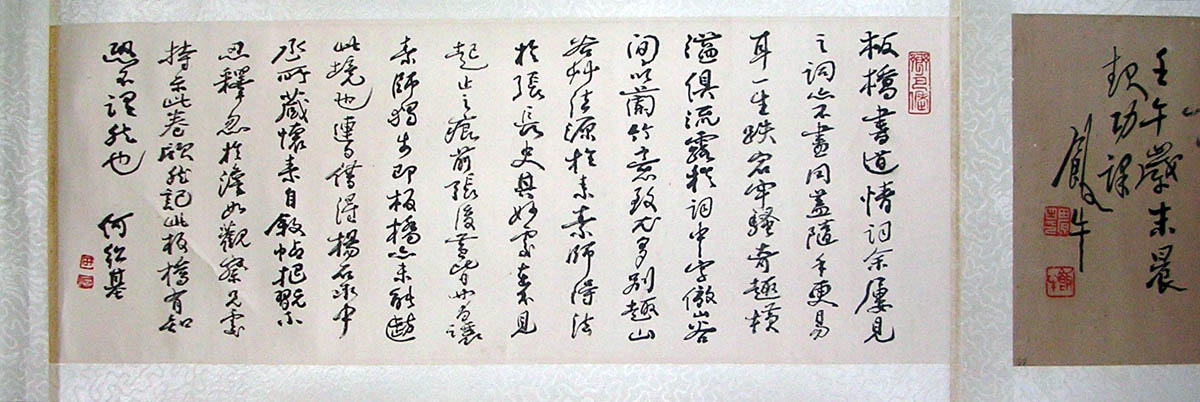 壬午歲末晨
起功課
飯牛
板橋書道情詞余屢見
之詞亦不盡同蓋隨手更易
耳一生跌宕牢騷奇趣橫
溢俱流露於詞中字倣山谷
間以蘭竹意致尤多別趣山
谷艸法源於素素師得法
於張長史其妙處在不見
起止之痕前張後黃皆讓
素師獨步即板橋亦未能
此境也連日借得楊石泉中
丞所藏懷素自敘帖把翫不
忍釋忽於澹如觀察兄處
持示此卷欣然記此板橋有知
恐不謂然也 何紹基